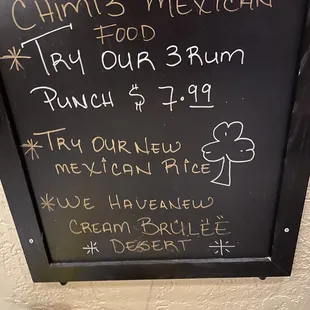 CHIMI'S MEXICAN
FOOD
* TRY OUR 3 RUM
PUNCH $ 7.99
* TRY OUR NEW
MEXICAN RICE
* WE HAVE A NEW
CREAM BRÜLËË
* DESSERT *